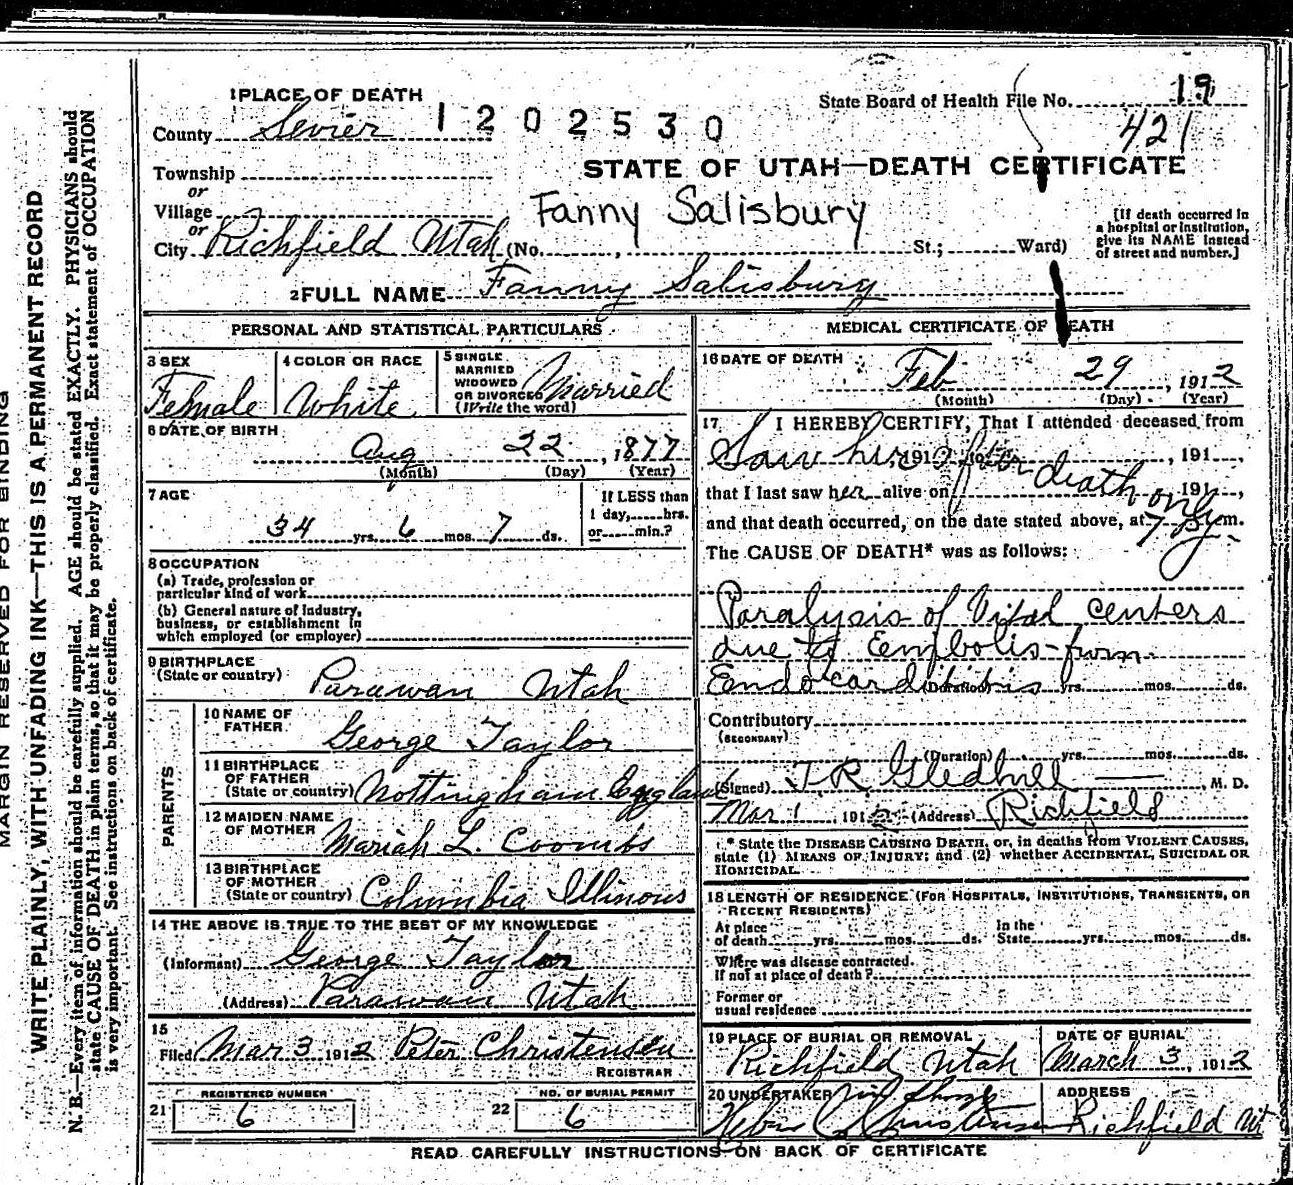 1 PLACE OF DEATH
County Sevier
1 2 0 2 5 3 0
State Board of Health File No. 19
421
STATE OF UTAH—DEATH CERTIFICATE
Township
or
Village
or
City Richfield Utah (No. , St.; Ward)
Fanny Salisbury
[If death occurred in
a hospital or institution,
give its NAME instead
of street and number.]
2 FULL NAME Fanny Salisbury
PERSONAL AND STATISTICAL PARTICULARS
3 SEX
Female
4 COLOR OR RACE
White
5 SINGLE
MARRIED
WIDOWED
OR DIVORCED
(Write the word)
Married
6 DATE OF BIRTH
Aug 22, 1877
(Month) (Day) (Year)
7 AGE
34 yrs. 6 mos. 7 ds.
If LESS than
1 day, hrs.
or min.?
8 OCCUPATION
(a) Trade, profession or
particular kind of work
(b) General nature of Industry,
business, or establishment in
which employed (or employer)
9 BIRTHPLACE
(State or country) Parawan Utah
PARENTS
10 NAME OF
FATHER George Taylor
11 BIRTHPLACE
OF FATHER
(State or country) Nottingham England
12 MAIDEN NAME
OF MOTHER Mariah L. Coombs
13 BIRTHPLACE
OF MOTHER
(State or country) Columbia Illinous
14 THE ABOVE IS TRUE TO THE BEST OF MY KNOWLEDGE
(Informant) George Taylor
(Address) Parawan Utah
15
Filed Mar 3 1912 Peter Christensen
REGISTRAR
REGISTERED NUMBER
21 6
NO. OF BURIAL PERMIT
22 6
MEDICAL CERTIFICATE OF DEATH
16 DATE OF DEATH
Feb 29, 1912
(Month) (Day) (Year)
17 I HEREBY CERTIFY, That I attended deceased from
Saw her after death only
, 191 , 191 ,
that I last saw her alive on 191 ,
and that death occurred, on the date stated above, at 7 m.
The CAUSE OF DEATH* was as follows:
Paralysis of Vital centers
due to Eembolis from
Eendocarditis (Duration) yrs. mos. ds.
Contributory
(SECONDARY)
(Duration) yrs. mos. ds.
(Signed) T. R. Gledhill M. D.
Mar 1, 1912 (Address) Richfield
* State the DISEASE CAUSING DEATH, or, in deaths from VIOLENT CAUSES,
state (1) MEANS OF INJURY; and (2) whether ACCIDENTAL, SUICIDAL OR
HOMICIDAL.
18 LENGTH OF RESIDENCE (FOR HOSPITALS, INSTITUTIONS, TRANSIENTS, OR
RECENT RESIDENTS)
At place
of death yrs. mos. ds.
In the
State yrs. mos. ds.
Where was disease contracted.
If not at place of death?
Former or
usual residence
19 PLACE OF BURIAL OR REMOVAL
Richfield Utah
DATE OF BURIAL
March 3, 1912
20 UNDERTAKER
Heber C Christensen
ADDRESS
Richfield Ut
READ CAREFULLY INSTRUCTIONS ON BACK OF CERTIFICATE
MARGIN RESERVED FOR BINDING
WRITE PLAINLY, WITH UNFADING INK—THIS IS A PERMANENT RECORD
N. B.—Every item of information should be carefully supplied. AGE should be stated EXACTLY. PHYSICIANS should
state CAUSE OF DEATH in plain terms, so that it may be properly classified. Exact statement of OCCUPATION
is very important. See instructions on back of certificate.